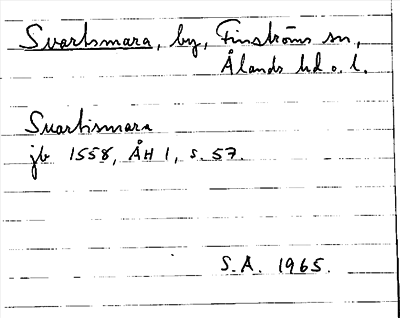 Svartsmara, by, Finströms sn,
Ålands hd o. l.
Svartismara
jb 1558, ÅH 1, s. 57.
S.A. 1965.